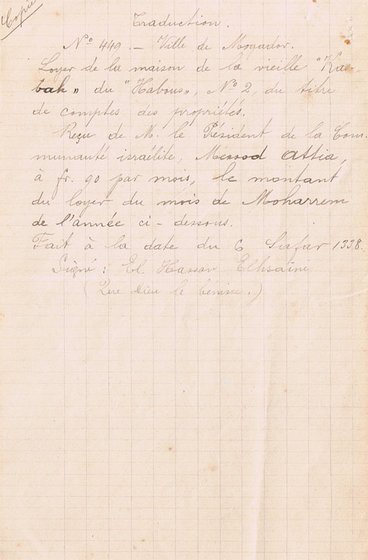 Copie
Traduction.
N° 449. — Ville de Mogador.
Loyer de la maison de la vieille "Kas-
bah" du "Habous", N° 2, du titre
de comptes des propriétés.
Reçu de M. le Président de la Com-
munauté israélite, Messod Attia,
à fr. 90 par mois, le montant
du loyer du mois de Moharrem
de l'année ci-dessous.
Fait à la date du 6 Safar 1338.
Signé: El Hassan Elhsaïni
(Que Dieu le bénisse.)